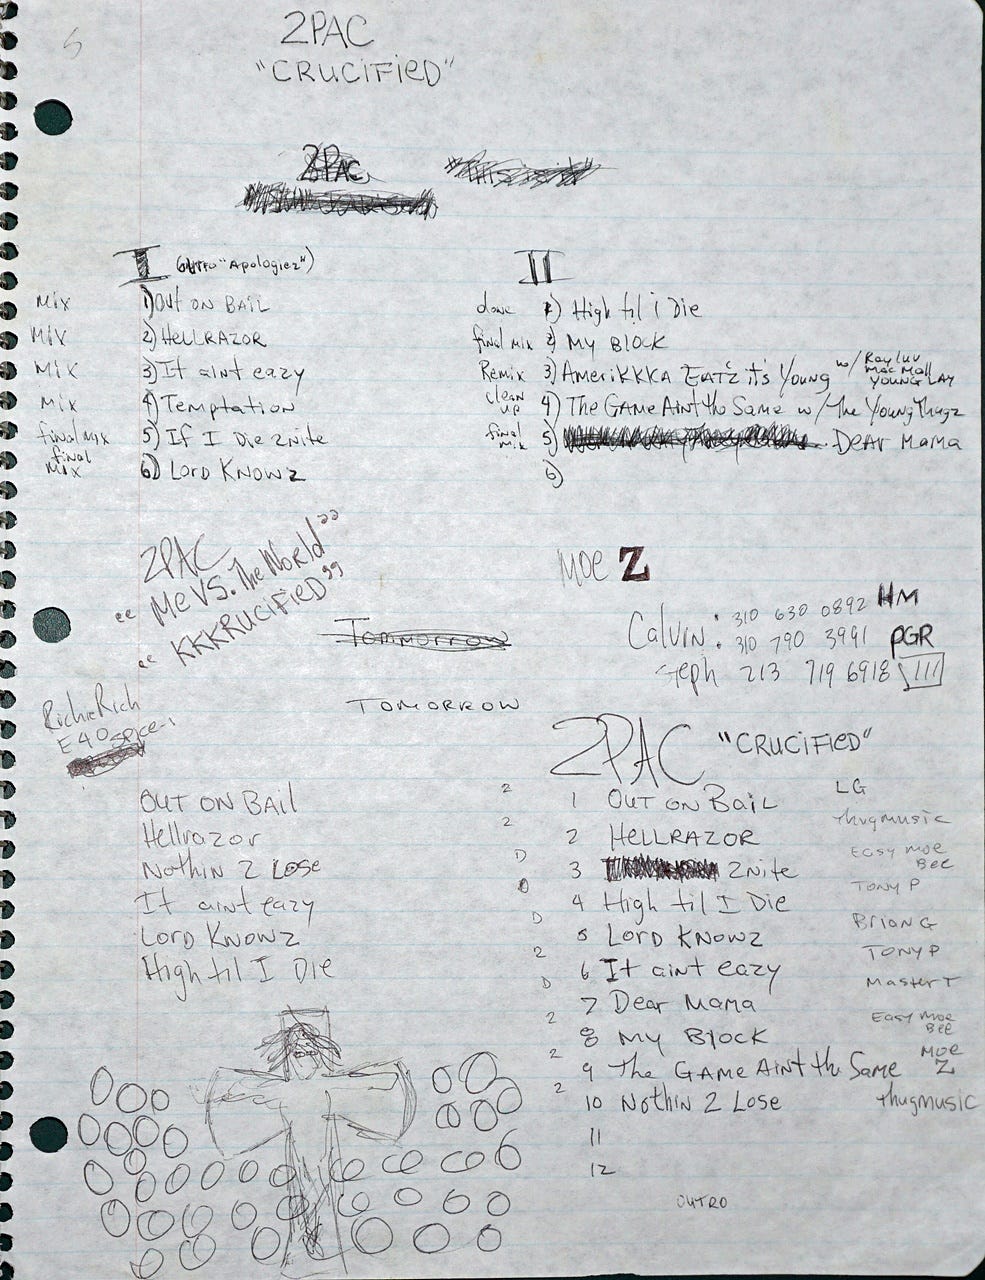 2PAC
"CRUCIFIED"
2PAC
I (outro "Apologiez")
mix 1) Out on Bail
mix 2) HELLRAZOR
mix 3) It aint eazy
mix 4) Temptation
final mix 5) If I Die 2nite
final mix 6) Lord Knowz
II
done 1) High til i Die
final mix 2) My Block
Remix 3) AmeriKKKA EATZ it's Young w/ Ray luv Mac Mall YOUNG LAY
clean up 4) The Game Aint the Same w/ The Young Thugz
final mix 5) Dear Mama
6)
2PAC
"Me VS. The World"
"KKKRUCIFIED"
MOE Z
Calvin: 310 630 0892 HM
310 790 3991 PGR
Steph 213 719 6918 111
Tommorrow
TOMORROW
RichieRich
E40 Spice-1
OUT ON BAIL
Hellrazor
Nothin 2 Lose
It aint eazy
Lord Knowz
High til I Die
2PAC "CRUCIFIED"
2 1 OUT ON Bail LG
2 2 HELLRAZOR thugmusic
D 3 2nite Easy Moe Bee
4 High til I Die Tony P
D 5 Lord Knowz Brian G
2 6 It aint eazy Tony P
D 7 Dear Mama Master T
2 8 My Block Easy Moe Bee
2 9 The Game Aint the Same Moe Z
2 10 Nothin 2 Lose thugmusic
11
12
OUTRO